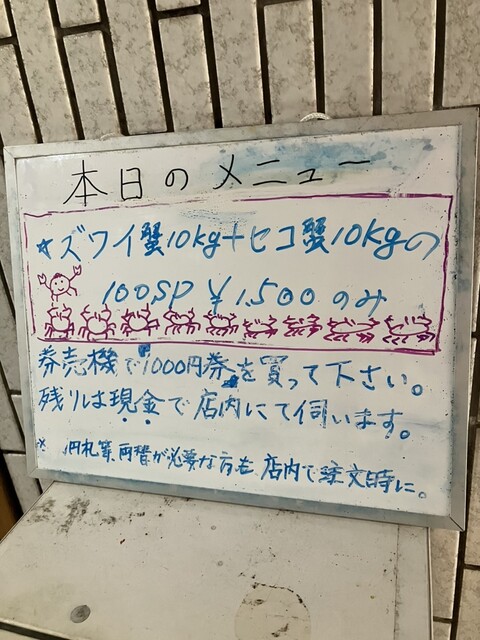 本日のメニュー
☆ズワイ蟹10kg+セコ蟹10kgの
100SP ¥1,500のみ
券売機で1000円券を買って下さい。
残りは現金で店内にて伺います。
※ 円札等、両替が必要な方も店内で注文時に。